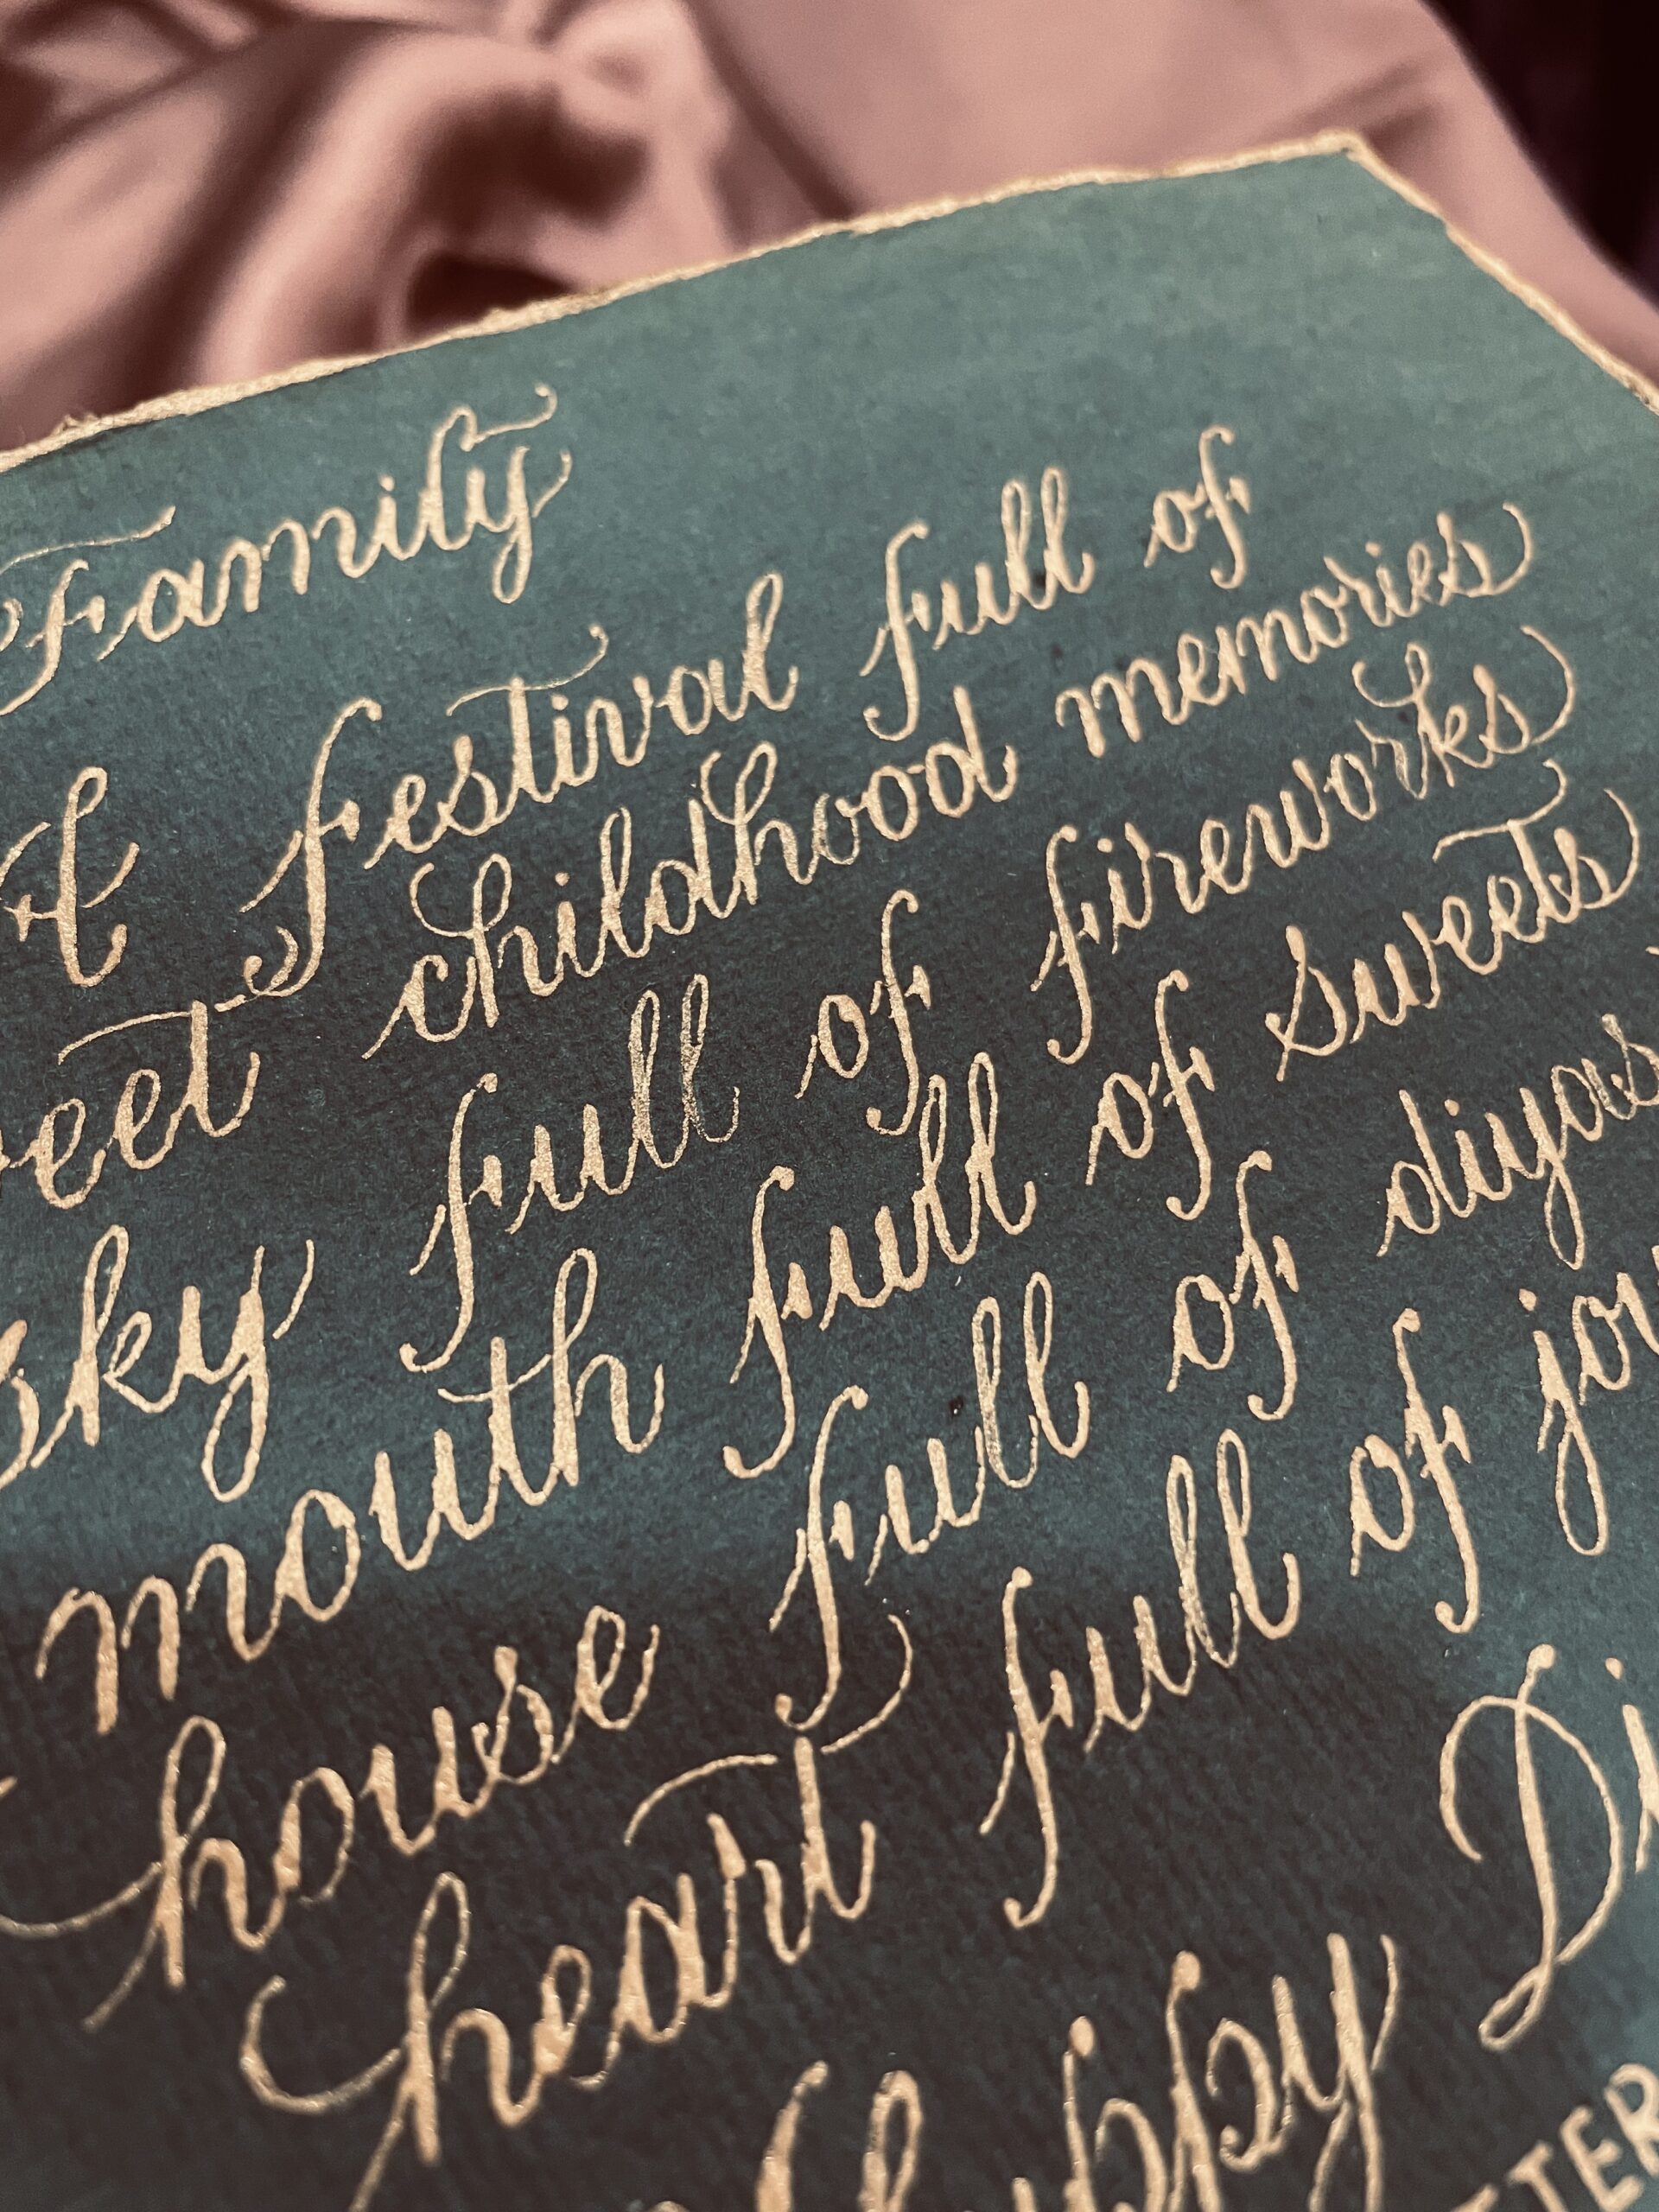 Family
A festival full of
sweet childhood memories
sky full of fireworks
mouth full of sweets
house full of diyas
heart full of joy
Happy Di
TER